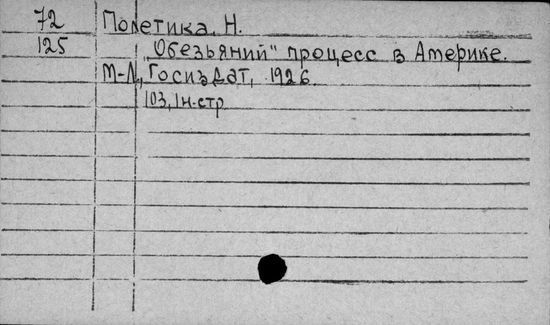 72 Полетика, Н.
125 „Обезьяний" процесс в Америке.
М-Л, Госиздат, 1926.
103, 1н.стр